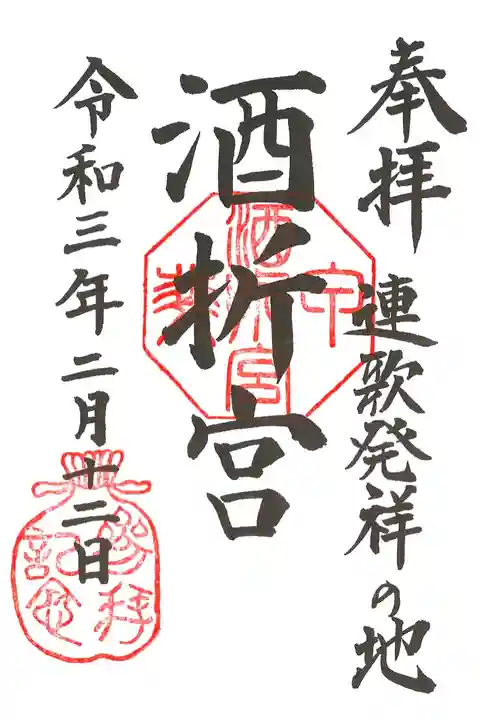 奉拝 連歌発祥の地
酒折宮
令和三年二月十二日
甲
酒折宮
参拝
記念